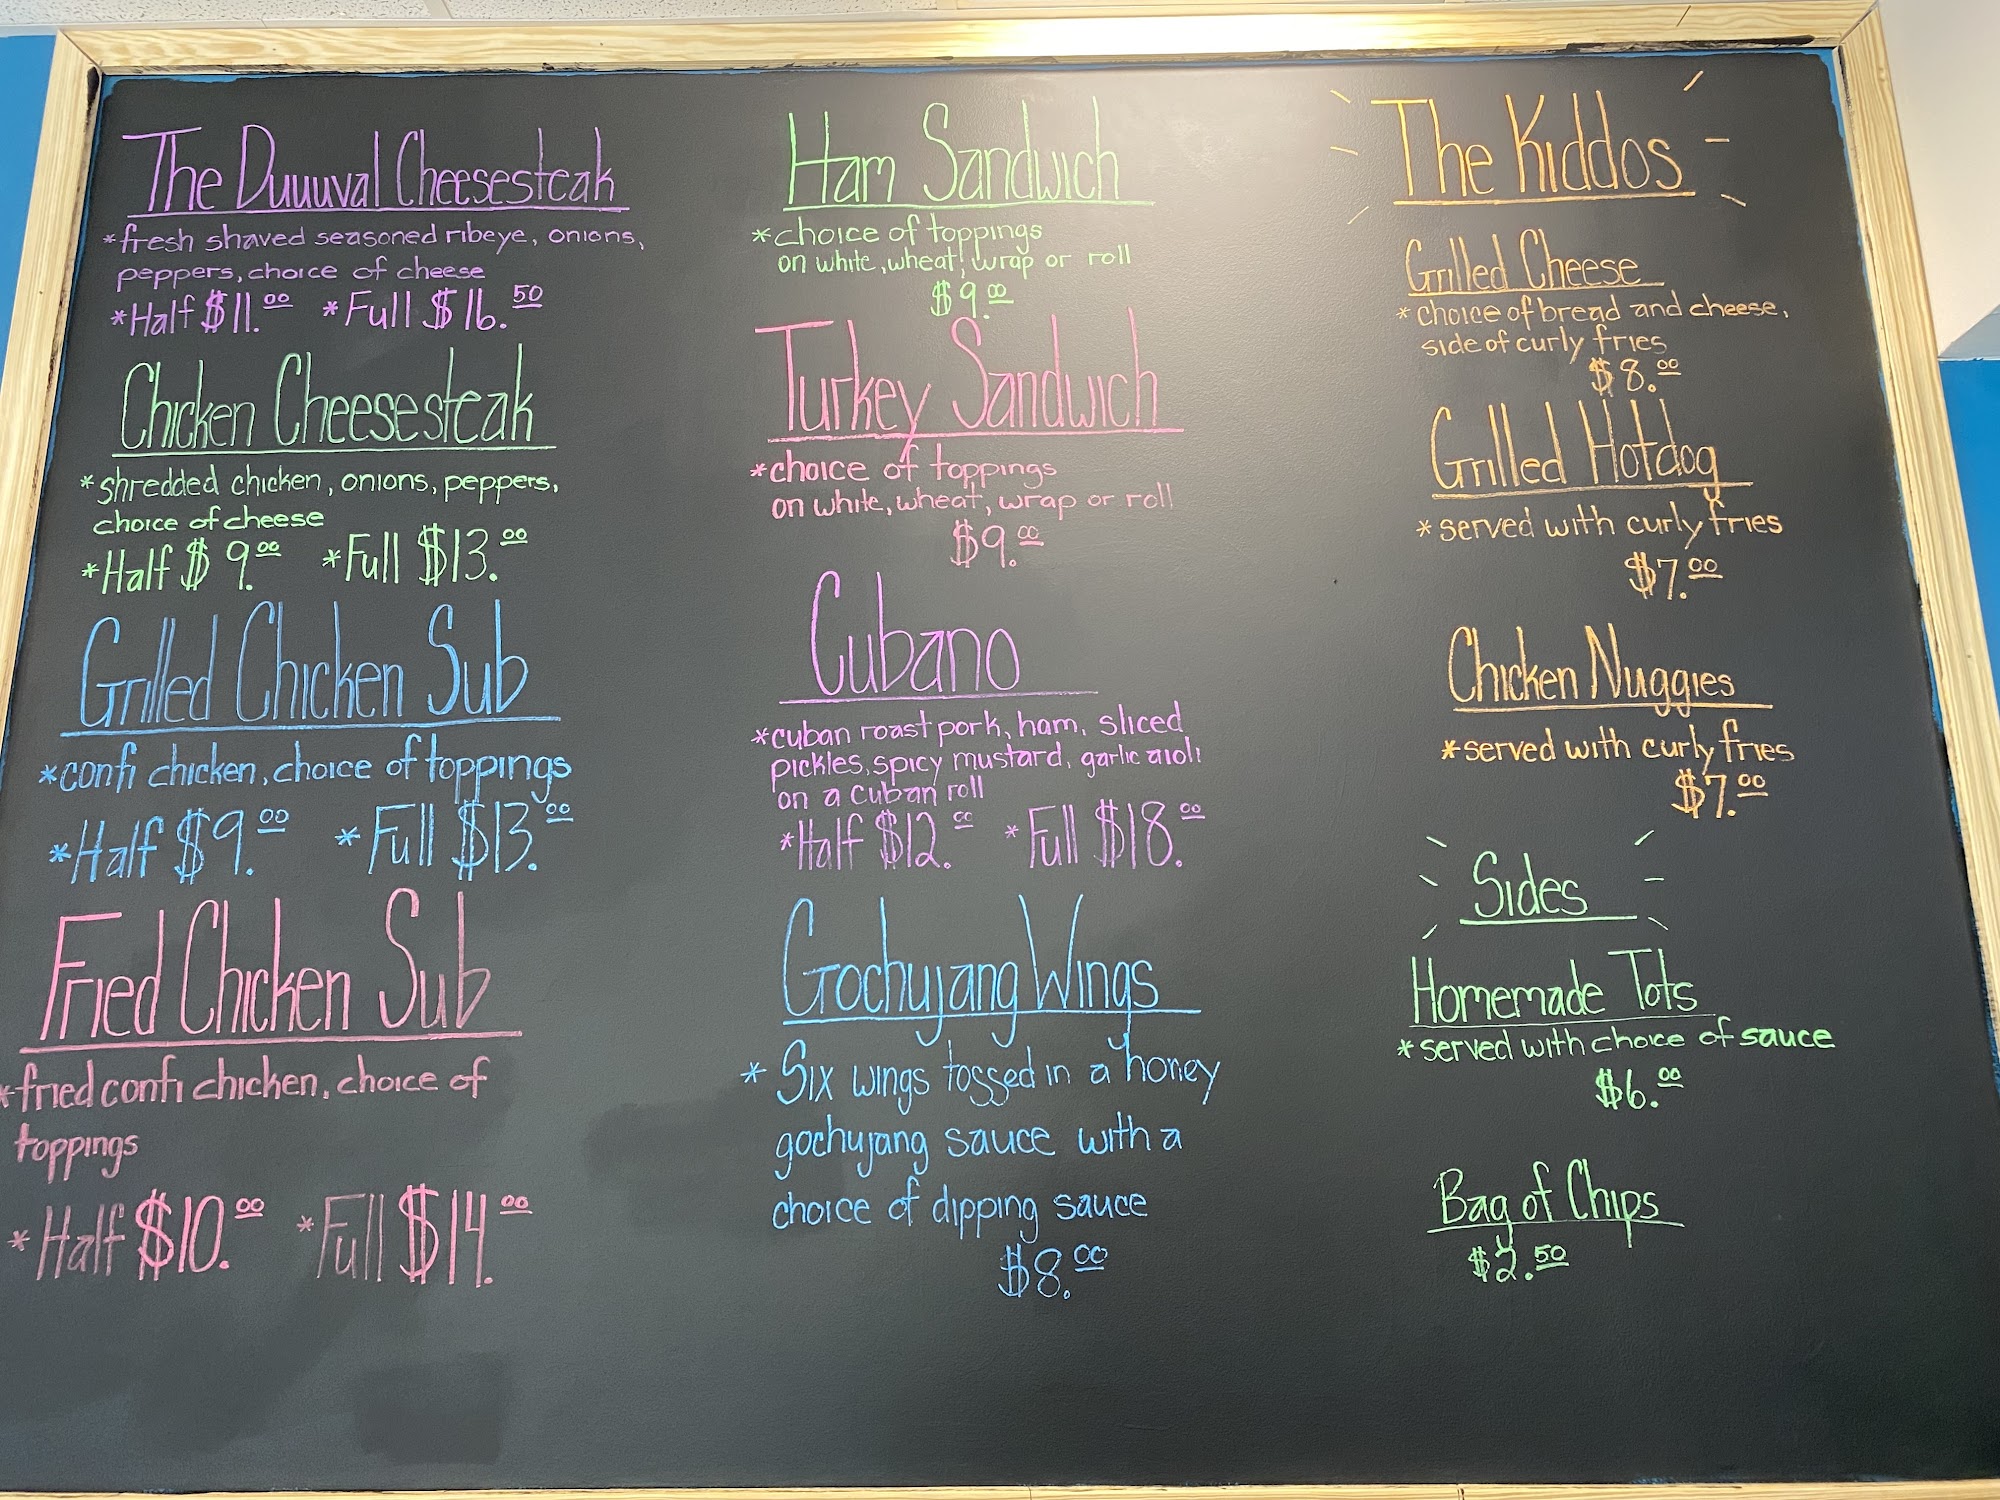 The Duuuval Cheesesteak
*fresh shaved seasoned ribeye, onions,
peppers, choice of cheese
*Half $11.00 *Full $16.50
Chicken Cheesesteak
*shredded chicken, onions, peppers,
choice of cheese
*Half $9.00 *Full $13.00
Grilled Chicken Sub
*confi chicken, choice of toppings
*Half $9.00 *Full $13.00
Fried Chicken Sub
*fried confi chicken, choice of
toppings
*Half $10.00 *Full $14.00
Ham Sandwich
*choice of toppings
on white, wheat, wrap or roll
$9.00
Turkey Sandwich
*choice of toppings
on white, wheat, wrap or roll
$9.00
Cubano
*cuban roast pork, ham, sliced
pickles, spicy mustard, garlic aioli
on a cuban roll
*Half $12.00 *Full $18.00
Gochujang Wings
*Six wings tossed in a honey
gochujang sauce with a
choice of dipping sauce
$8.00
The Kiddos
Grilled Cheese
*choice of bread and cheese,
side of curly fries
$8.00
Grilled Hotdog
*served with curly fries
$7.00
Chicken Nuggies
*served with curly fries
$7.00
Sides
Homemade Tots
*served with choice of sauce
$6.00
Bag of Chips
$2.50